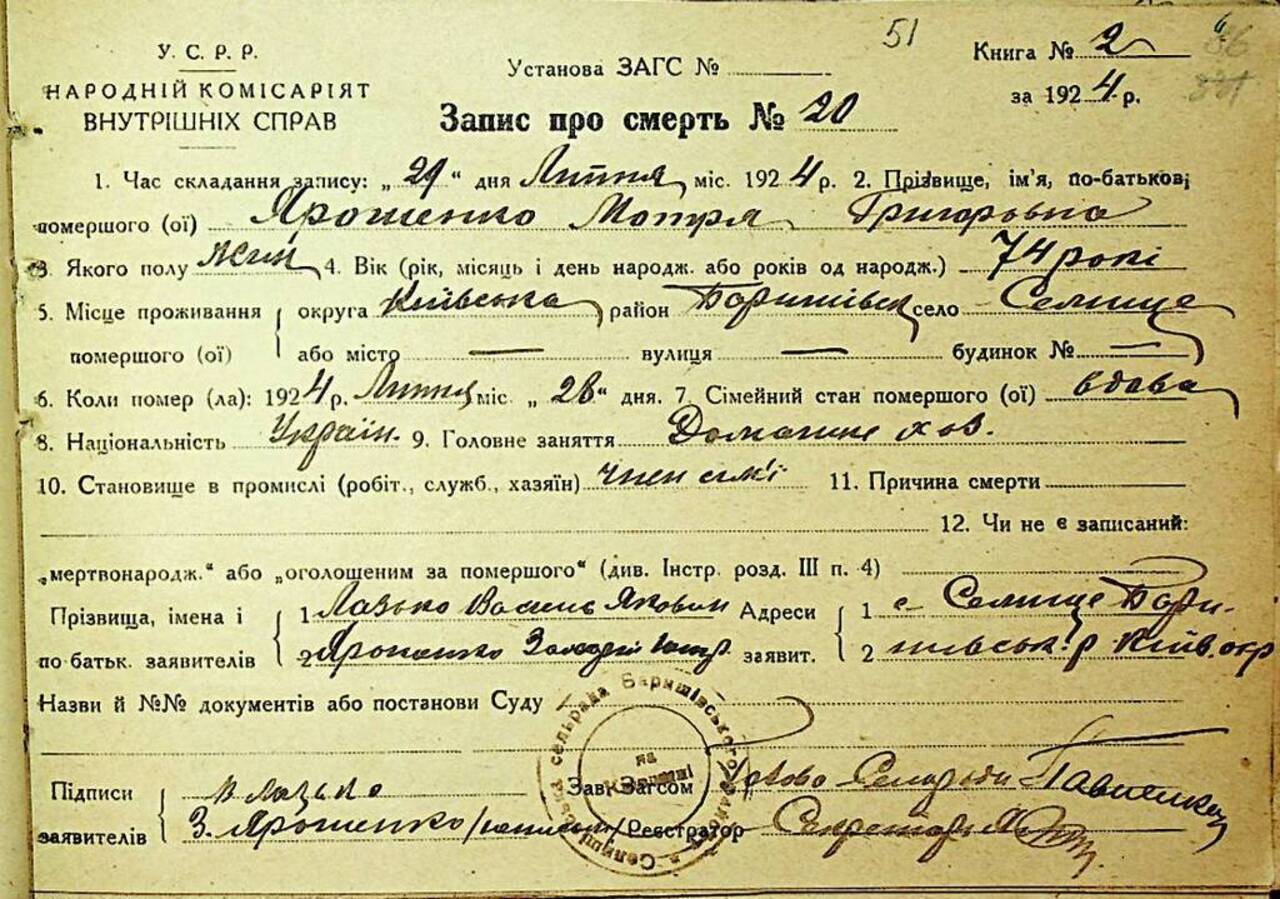 51
У. С. Р. Р.
НАРОДНІЙ КОМІСАРІЯТ
ВНУТРІШНІХ СПРАВ
Установа ЗАГС №
Книга № 2
86
за 1924 р.
Запис про смерть № 20
1. Час складання запису: „29“ дня Липня міс. 1924 р. 2. Прізвище, ім'я, по-батькові
помершого (ої) Ярошенко Мотря Григоровна
3. Якого полу Жин 4. Вік (рік, місяць і день народж. або років од народж.) 74 рокі
5. Місце проживання округа Київська район Баришівськ село Селище
помершого (ої) або місто — вулиця — будинок № —
6. Коли помер (ла): 1924 р. Липня міс. „28“ дня. 7. Сімейний стан помершого (ої) вдова
8. Національність Україн. 9. Головне заняття Домашнє хоз.
10. Становище в промислі (робіт., служб., хазяїн) член сім'ї 11. Причина смерти
12. Чи не є записаний:
„мертвонародж.“ або „оголошеним за помершого“ (див. Інстр. розд. III п. 4)
Прізвища, імена і 1 Лазько Василь Якович Адреси 1 с. Селище Бари-
по батьк. заявителів 2 Ярошенко заявит. 2 шівськ. р Київ. окр
Назви й №№ документів або постанови Суду
Селищ сельрада Баришівського району на Київщині
Підписи В Лазько Зав. Загсом Голова Сельради Павленко
заявителів З. Ярошенко Реєстратор Секретарь